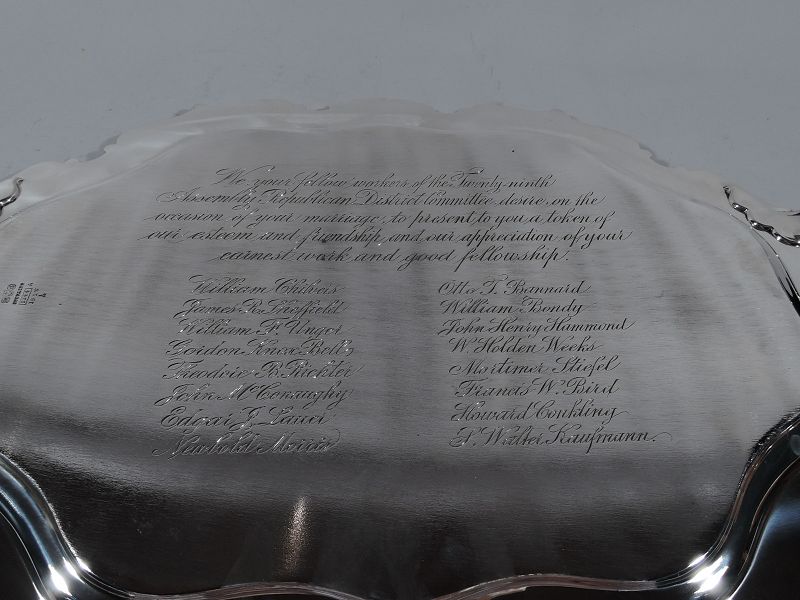 We, your fellow workers of the Twenty-ninth
Assembly Republican District Committee desire, on the
occasion of your marriage, to present to you a token of
our esteem and friendship and our appreciation of your
earnest work and good fellowship.
William Chilvers
James R. Sheffield
William F. Unger
Gordon Knox Bell
Theodore B. Richter
John McConaughy
Edgar J. Lauer
Newbold Morris
Otto T. Bannard
William Bondy
John Henry Hammond
W. Holden Weeks
Mortimer Stiefel
Francis W. Bird
Howard Conkling
S. Walter Kaufmann.